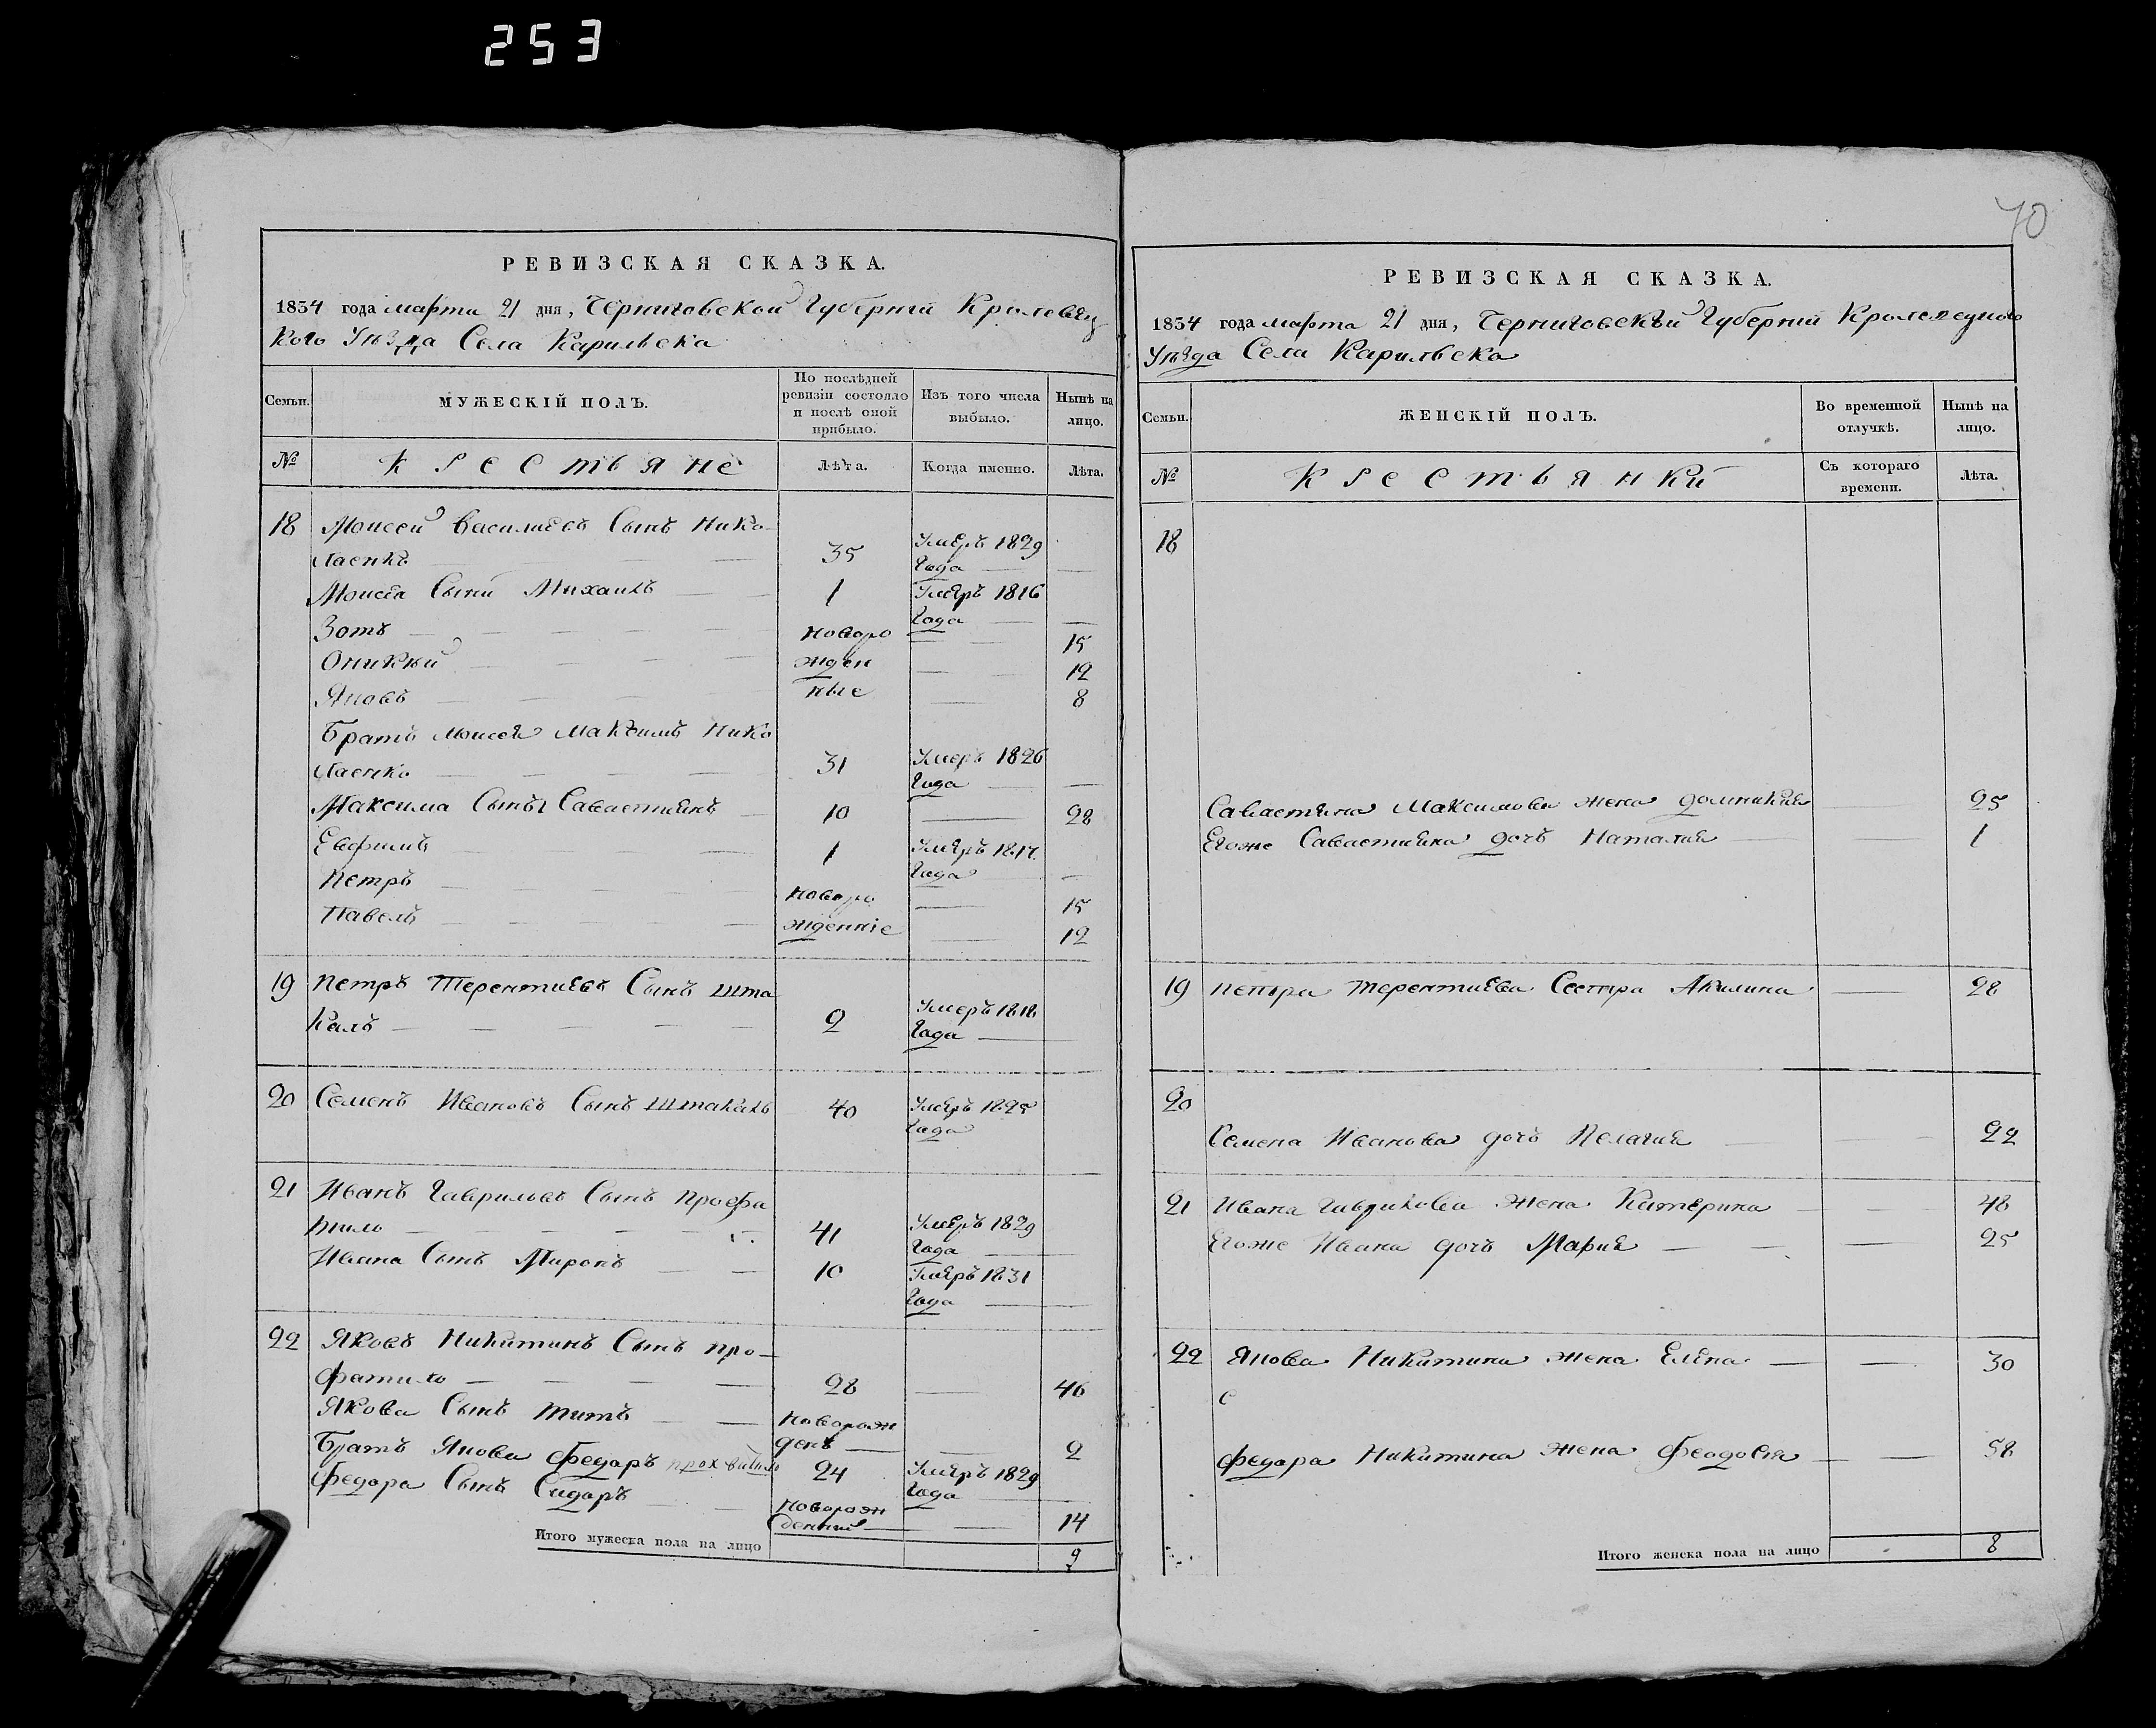 253
70
РЕВИЗСКАЯ СКАЗКА.
1834 года марта 21 дня, Черниговской Губерніи Кролевец
кого Уѣзда Села Карильска
Семьи.
МУЖЕСКІЙ ПОЛЪ.
По послѣдней
ревизіи состояло
и послѣ оной
прибыло.
Изъ того числа
выбыло.
Нынѣ на
лицо.
№
Крестьяне
Лѣта.
Когда именно.
Лѣта.
18 Моисей Василиевъ Сынъ Нико
лаенко 35 Умеръ 1829
Года
Моисея Сыны Михаилъ 1 Умеръ 1816
Года
Зотъ новоро 15
Оникий жден 12
Яковъ ные 8
Братъ Моисея Максимъ Нико
лаенко 31 Умеръ 1826
Года
Максима Сыны Савастиянъ 10 28
Евфимъ 1 Умеръ 1817
Года
Петръ новоро 15
Павелъ жденніе 12
19 Петръ Терентиевъ Сынъ Шта
каль 2 Умеръ 1818
Года
20 Семенъ Ивановъ Сынъ Штакаль 40 Умеръ 1825
Года
21 Иванъ Гавриловъ Сынъ Профа
тило 41 Умеръ 1829
Года
Ивана Сынъ Миронъ 10 Умеръ 1831
Года
22 Яковъ Никитинъ Сынъ Про-
фатило 28 46
Якова Сынъ Титъ новорож
денъ 2
Братъ Якова Федаръ 24 Умеръ 1829
Года
Федара Сынъ Сидаръ новорож
денный 14
Итого мужеска пола на лицо 9
РЕВИЗСКАЯ СКАЗКА.
1834 года марта 21 дня, Черниговский Губерніи
Уѣзда Села Карильска
Семьи.
ЖЕНСКІЙ ПОЛЪ.
Во временной
отлучкѣ.
Нынѣ на
лицо.
№
Крестьянки
Съ котораго
времени.
Лѣта.
18
Савастияна Максимова жена Домникия 25
Егоже Савастияна дочъ Наталия 1
19 Петра Терентиева Сестра Акилина 28
20
Семена Иванова дочъ Пелагия 22
21 Ивана Гаврилова жена Катерина 48
Егоже Ивана дочъ Мария 25
22 Якова Никитина жена Елена 30
с
Федара Никитина жена Феодосия 58
Итого женска пола на лицо 8